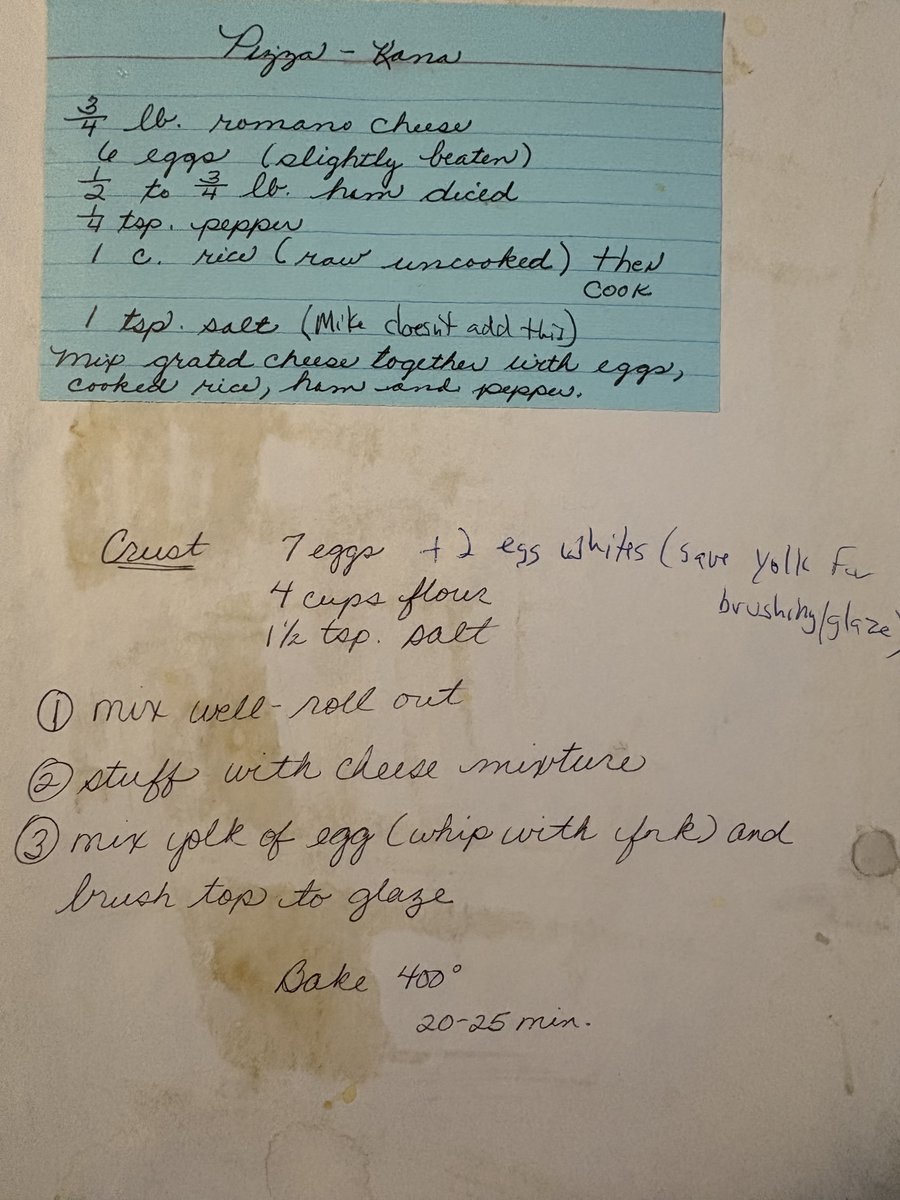 Pizza - Kana
3/4 lb. romano cheese
6 eggs (slightly beaten)
1/2 to 3/4 lb. ham diced
1/4 tsp. pepper
1 c. rice (raw uncooked) then
cook
1 tsp. salt (Mike doesn't add this)
Mix grated cheese together with eggs,
cooked rice, ham and pepper.
Crust 7 eggs + 2 egg whites (save yolk for
brushing/glaze)
4 cups flour
1 1/2 tsp. salt
① mix well - roll out
② stuff with cheese mixture
③ mix yolk of egg (whip with fork) and
brush top to glaze
Bake 400°
20-25 min.